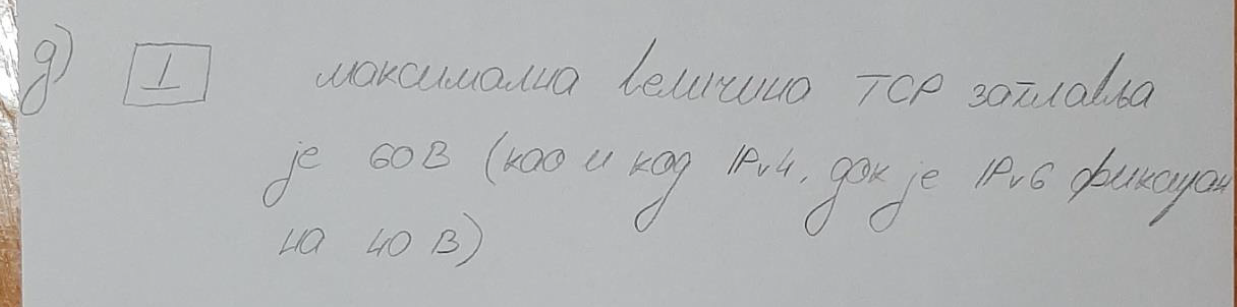 д) I максимална величина TCP заглавља
је 60B (као и код IPv4, док је IPv6 фиксиран
на 40 B)